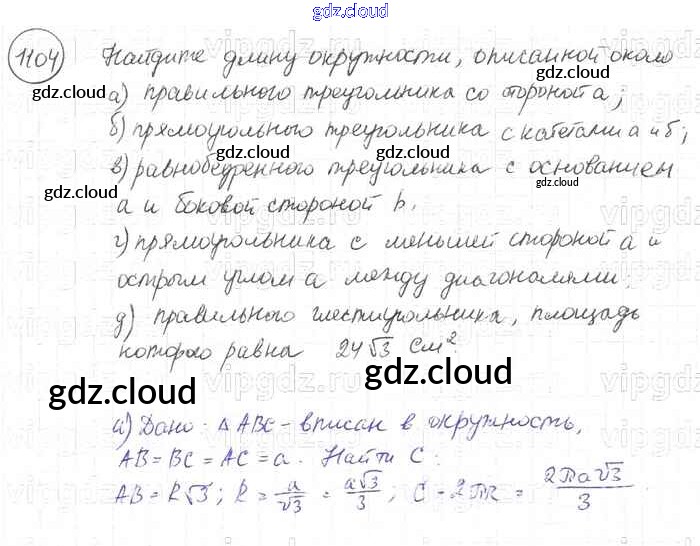 gdz.cloud
1104 Найдите длину окружности, описанной около
gdz.cloud gdz.cloud
а) правильного треугольника со стороной а;
gdz.cloud
б) прямоугольного треугольника с катетами а и б;
gdz.cloud gdz.cloud
в) равнобедренного треугольника с основанием
gdz.cloud gdz.cloud
а и боковой стороной b.
г) прямоугольника с меньшей стороной а и
острым углом а между диагоналями;
д) правильного шестиугольника, площадь
которого равна 24√3 см².
gdz.cloud gdz.cloud
а) Дано: △ ABC - вписан в окружность,
AB = BC = AC = a. Найти C:
AB = R√3; R = a/√3 = a√3/3; C - 2πR = 2πa√3/3